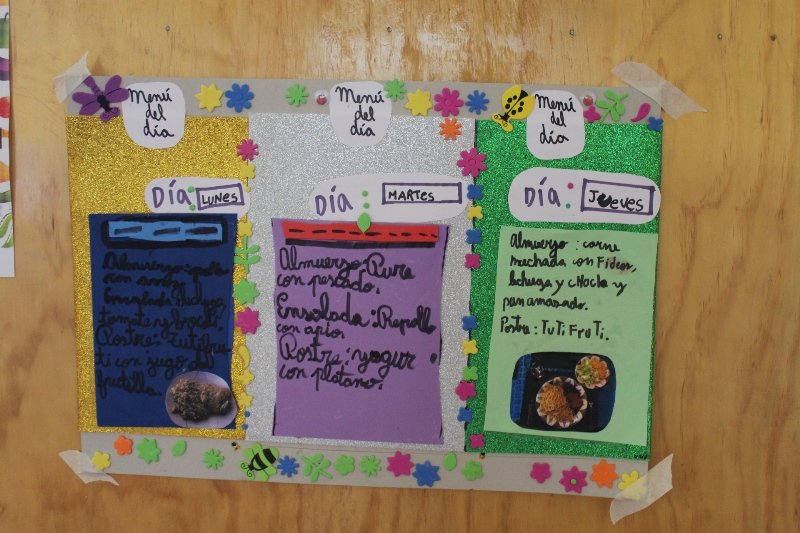 Menú
del
día
DÍa: LUNES
Almuerzo: pollo
con arroz
Ensalada: lechuga
tomate y brocoli.
Postre: Tutifru
ti con jugo de
frutilla.
Menú
del
día
DÍa: MARTES
Almuerzo: Pure
con pescado.
Ensalada: Repollo
con apio.
Postre: yogur
con platano.
Menú
del
día
DÍa: JUEVES
Almuerzo: carne
mechada con Fideos,
lechuga y cHocLo y
pan amasado.
Postre: TuTi FruTi.